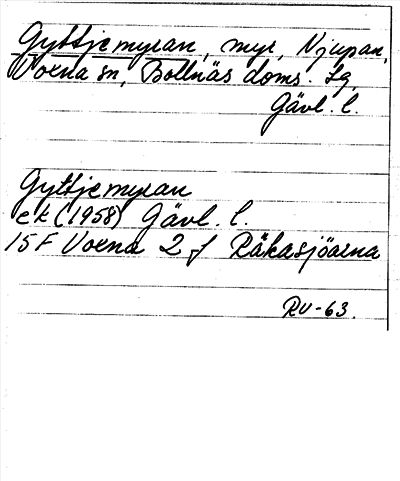 Gyttjemyran, myr, Njupan,
Voxna sn, Bollnäs doms. lg,
Gävl. l.
Gyttjemyran
ek (1958) Gävl. l.
15F Voxna 2 f Räkasjöarna
RU-63.